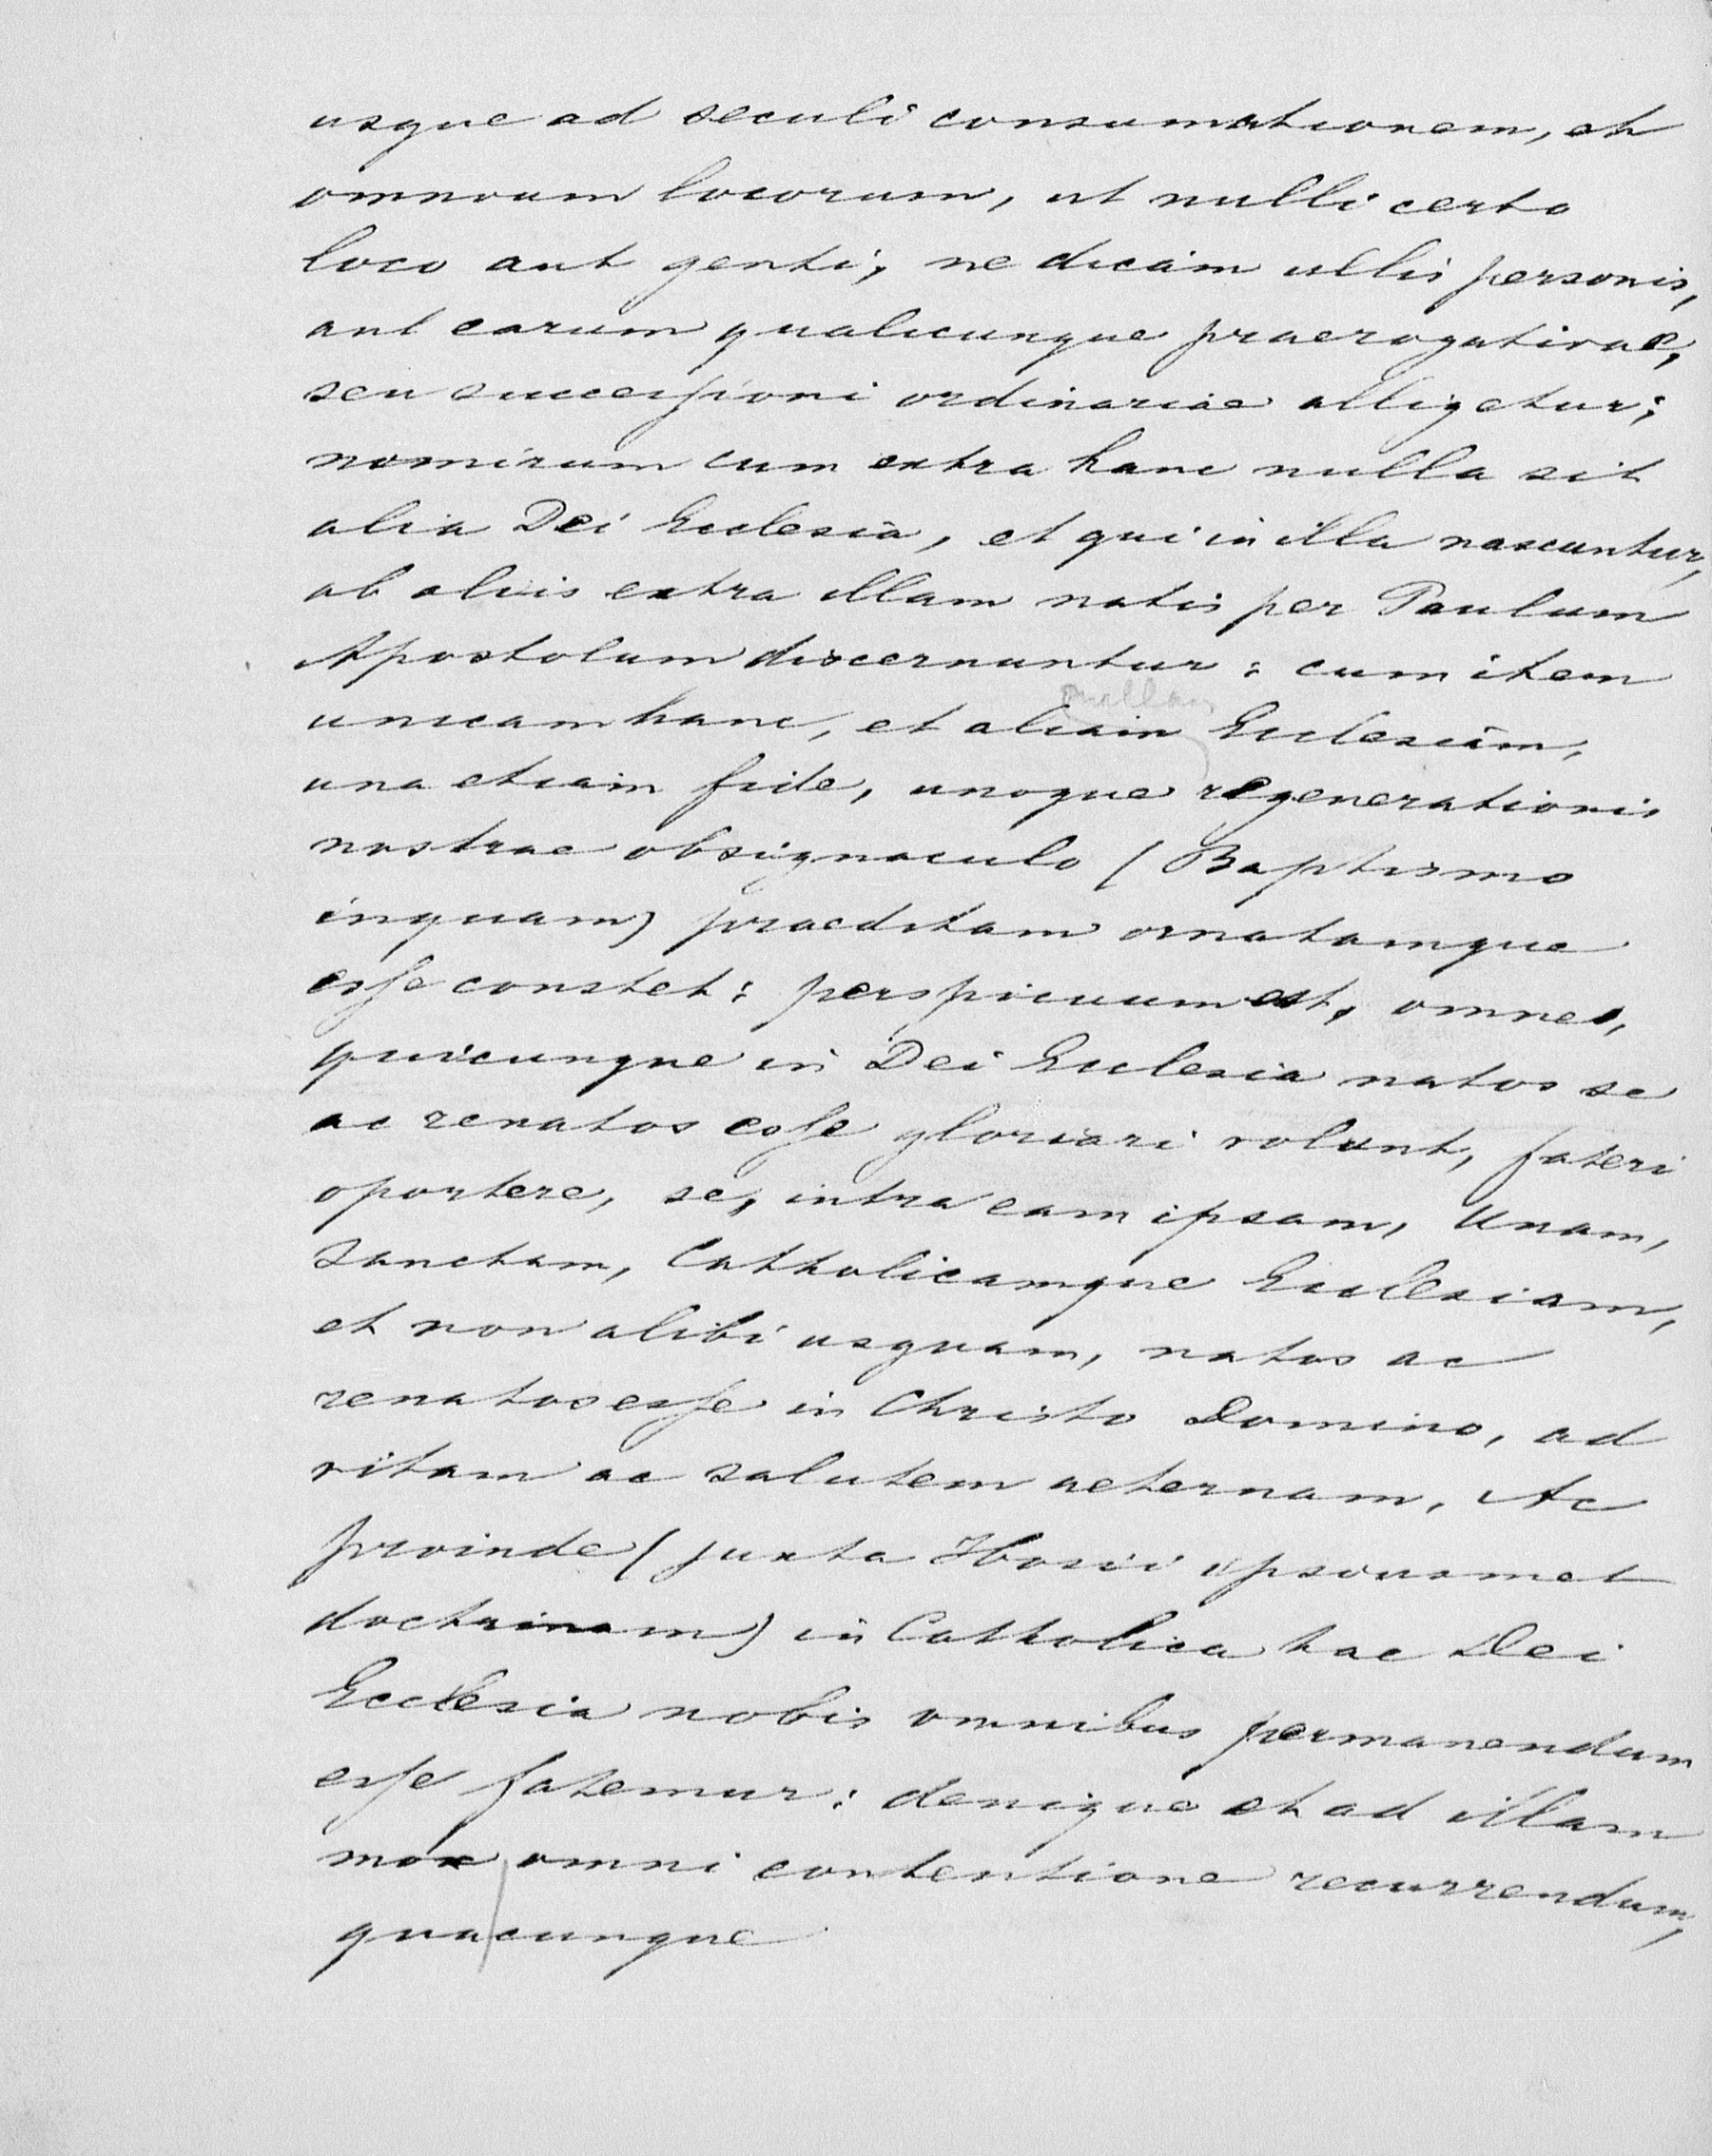 usque ad seculi consumationem, et
omnium locorum, ut nulli certo
loco aut genti, ne dicam ullis personis,
aut earum qualicunque praerogativae,
seu successioni ordinariae alligetur;
nomirum cum extra hanc nulla sit
alia Dei Ecclesia, et qui in illa nascuntur,
ab aliis extra illam natis per Paulum
Apostolum discernuntur: cum item
nullam
unicam hanc, et aliam Ecclesiam,
una etiam fide, unoque regenerationis
nostrae obsignaculo (Baptismo
inquam) praeditam ornatamque
esse constet: perspicuum est, omnes,
quicunque in Dei Ecclesia natos se
ac renatos esse gloriari volunt, fateri
oportere, se, intra eam ipsam, Unam,
Sanctam, Catholicamque Ecclesiam,
et non alibi usquam, natos ac
renatos esse in Christo Domino, ad
vitam ac salutem aeternam. Ac
proinde (juxta Hosii ipsiusmet
doctrinam) in Catholica hac Dei
Ecclesia nobis omnibus permanendum
esse fatemur: denique et ad illam
mox omni contentione recurrendum,
quacunque